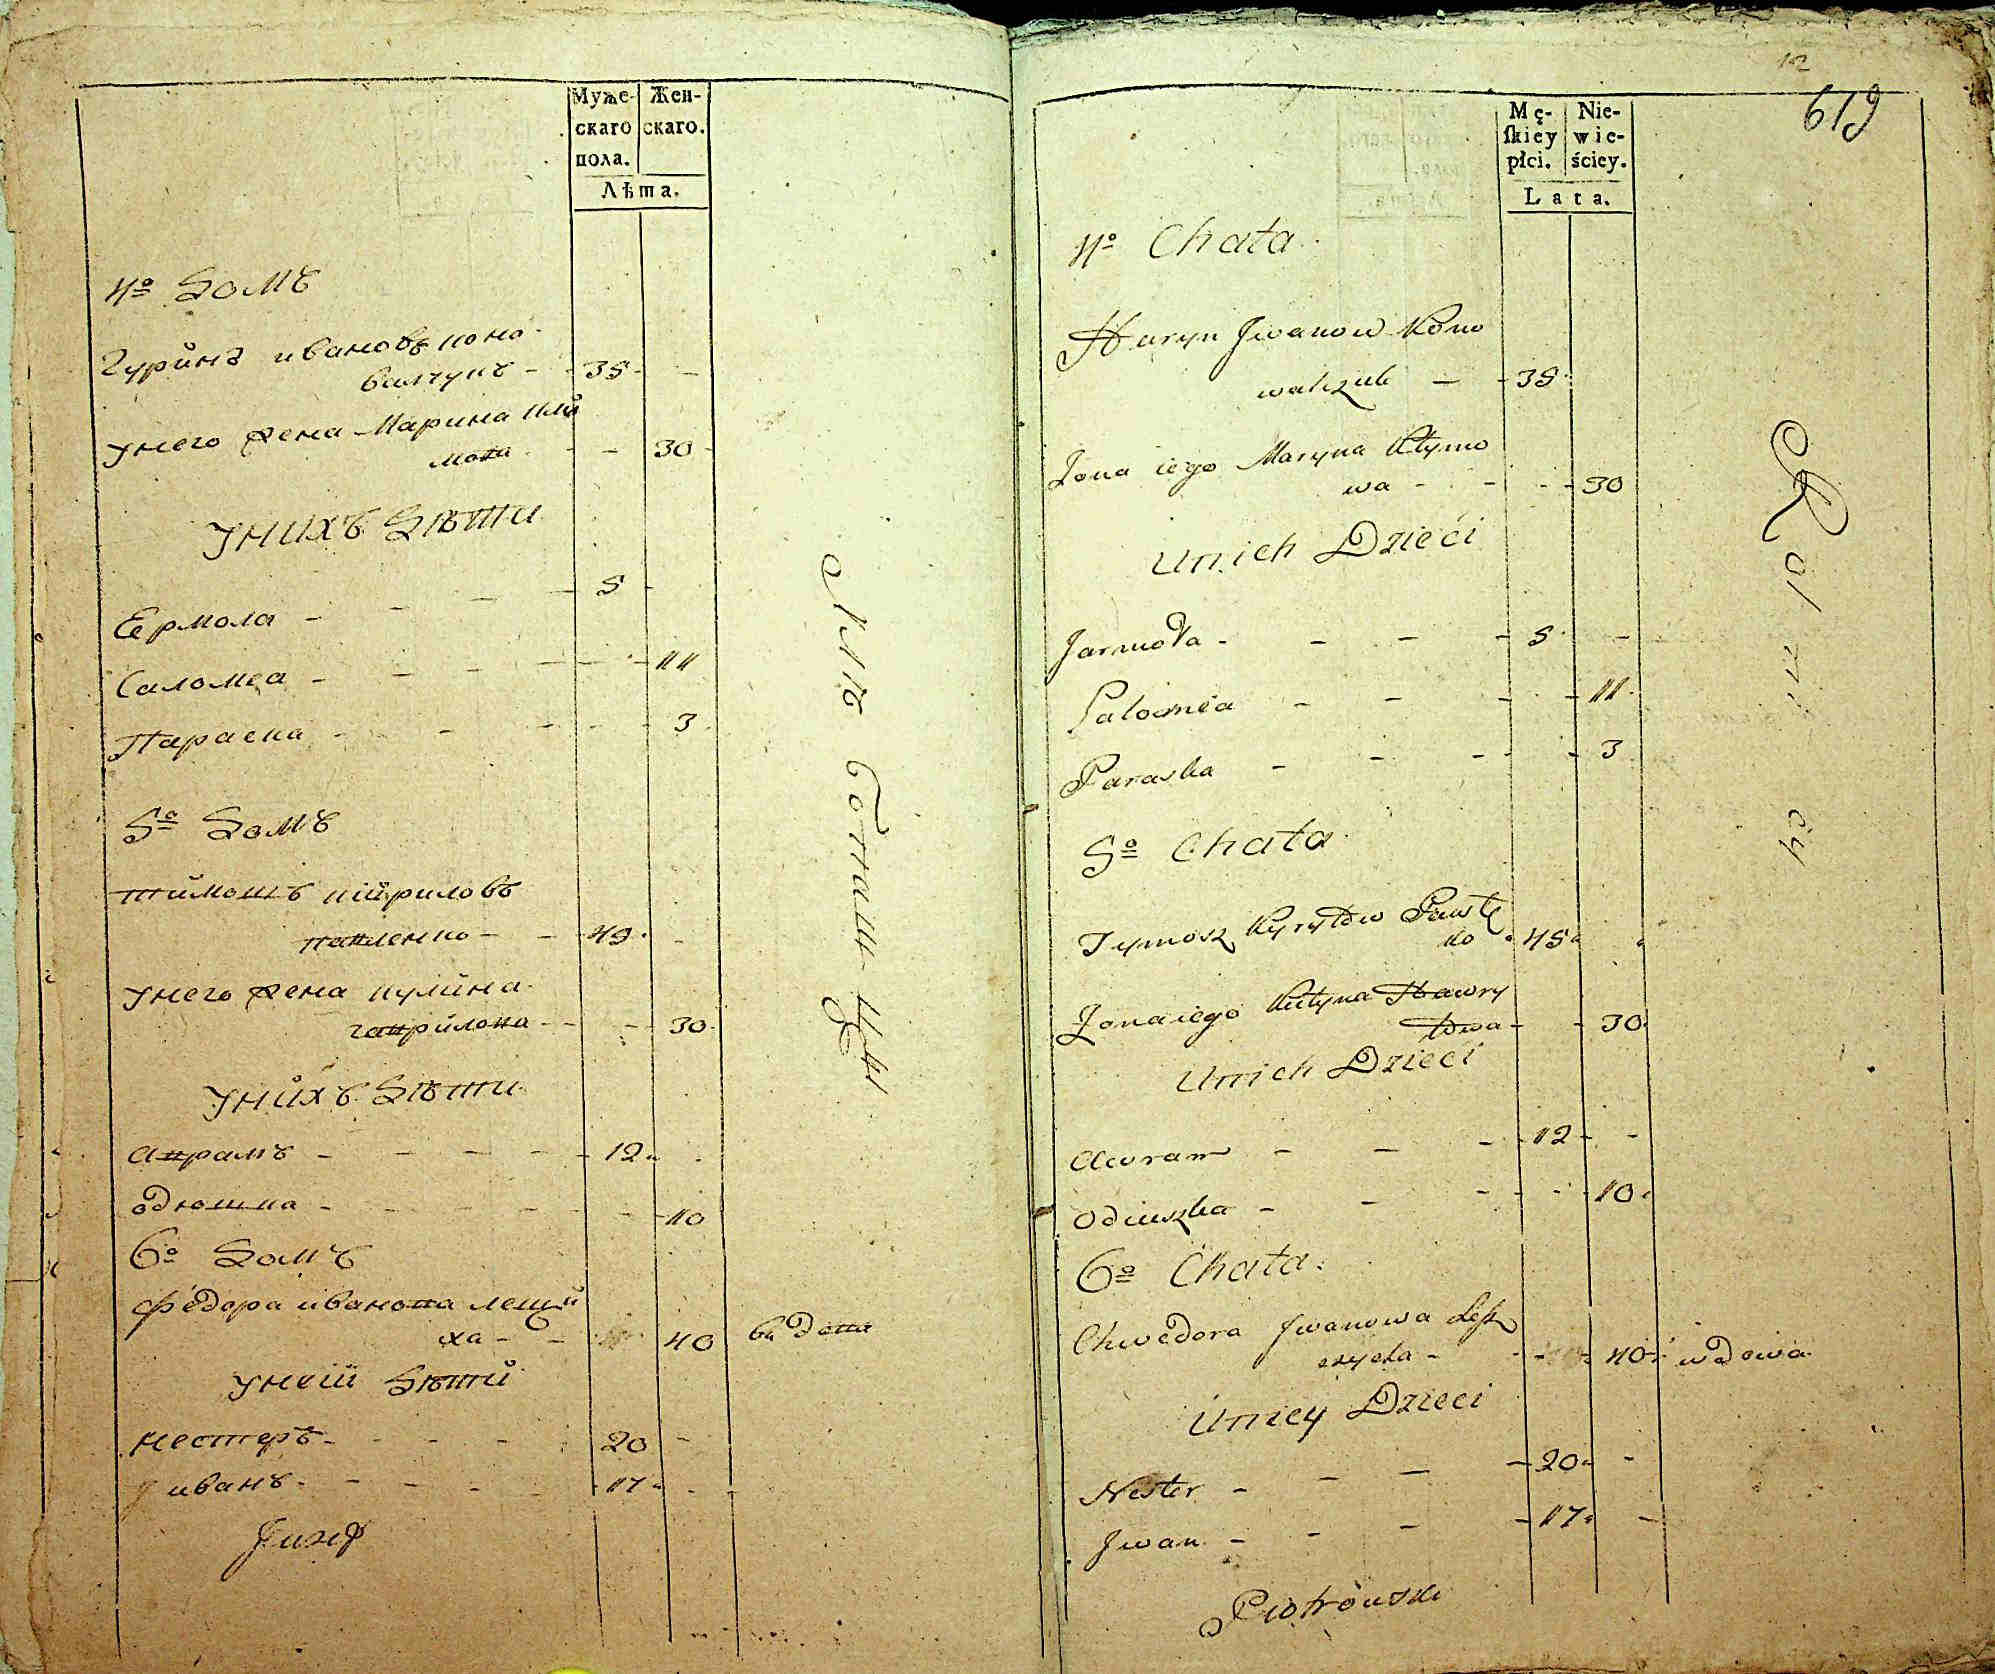 Муже-
скаго
пола.
Жен-
скаго.
Лѣта.
4º Домъ
Гурiинъ ивановъ коно
валчукъ - - 35 - -
Унего жена Марина Кли
мова - - 30 -
Унихъ Дѣти
Ермола - - - - 5 -
Саломеа - - - - 11
Параска - - - - 3
5º Домъ
тимошъ кириловъ
павленко - - 49 -
Унего жена кулiина
гаврилова - - 30
Унихъ Дѣти
аврамъ - - - - 12
одюшка - - - - 10
6º Домъ
федора иванова лещи
ха - - 40 вдова
Унеiи Дѣти
нестеръ - - - - 20 -
иванъ - - - - 17 - -
Juzef
12
619
Mę-
skiey
płci.
Nie-
wie-
ściey.
Lata.
4º Chata
Huryn Jwanow Kono
walczuk - - 35
Zona iego Maryna Klymo
wa - - - 30
Unich Dzieci
Jarmoła - - - - 5 -
Salomea - - - - 11
Paraska - - - - 3
5º Chata
Tymosz Kyryłow Pawłę
ko 45
Zona iego Kulyna Hawry
łowa - - 30
Unich Dzieci
Awram - - - - 12 - -
Odiuszka - - - - 10
6º Chata
Chwedora Jwanowa Lesz
czycha - - - 40 wdowa
Uniey Dzieci
Nester - - - - 20 -
Jwan - - - - 17 -
Piotrowski